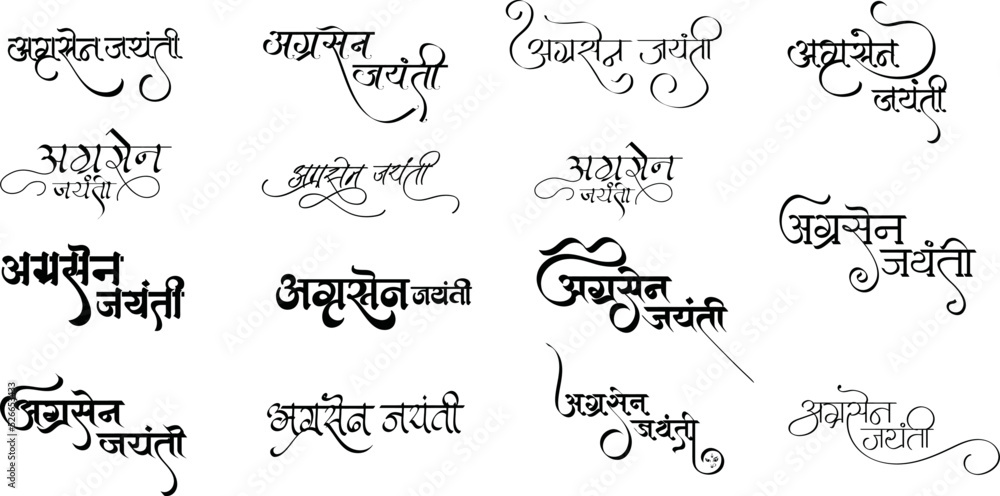 अग्रसेन जयंती
अग्रसेन
जयंती
अग्रसेन जयंती
अग्रसेन
जयंती
अग्रसेन
जयंती
अग्रसेन जयंती
अग्रसेन
जयंती
अग्रसेन
जयंती
अग्रसेन
जयंती
अग्रसेन जयंती
अग्रसेन
जयंती
अग्रसेन
जयंती
अग्रसेन जयंती
अग्रसेन
जयंती
अग्रसेन
जयंती
Adobe Stock